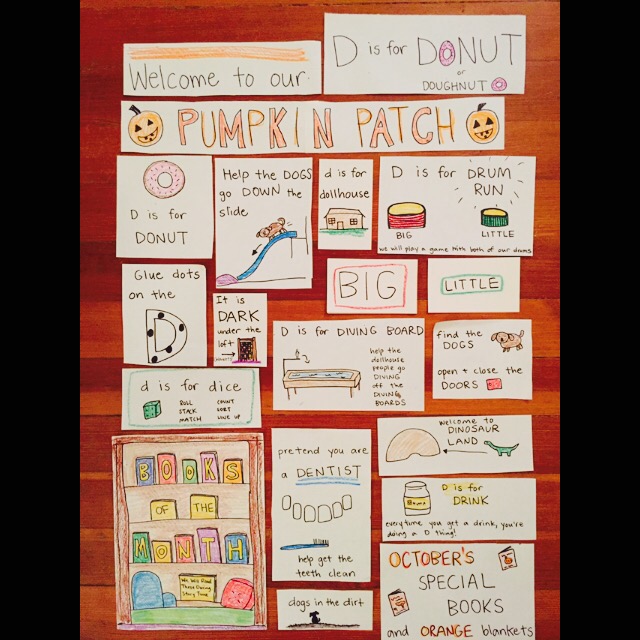 Welcome to our:
D is for DONUT
or
DOUGHNUT
PUMPKIN PATCH
D is for
DONUT
Help the DOGS
go DOWN the
slide
d is for
dollhouse
D is for DRUM
RUN
BIG
LITTLE
we will play a game with both of our drums
Glue dots
on the
D
It is
DARK
under the
loft
BIG
LITTLE
D is for DIVING BOARD
help the
dollhouse
people go
DIVING
off the
DIVING
BOARDS
find the
DOGS
open + close the
DOORS
d is for dice
ROLL
STACK
MATCH
COUNT
SORT
LINE UP
BOOKS
OF THE
MONTH
We Will Read
These During
Story Time
pretend you are
a DENTIST
help get the
teeth clean
dogs in the dirt
welcome to
DINOSAUR
LAND
D is for
DRINK
everytime you get a drink, you're
doing a D thing!
OCTOBER'S
SPECIAL
BOOKS
and ORANGE blankets